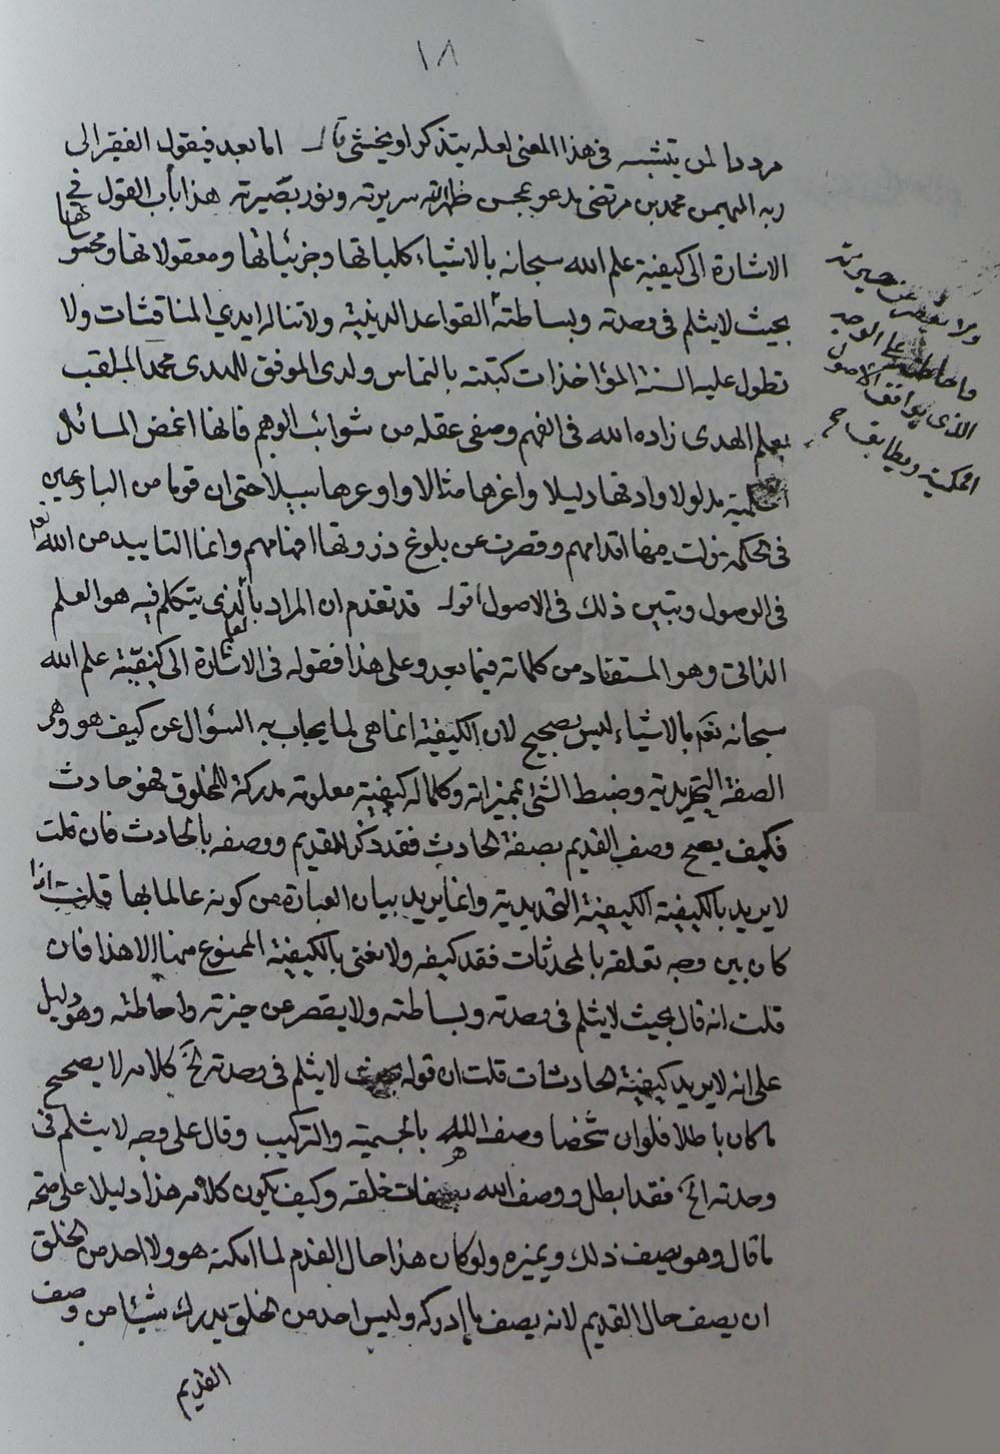 ١٨
مرددا لمن يتشبه فى هذا المعنى لعله يتذكر او يخشى قال اما بعد فيقول الفقير الى
ربه المهيمن محمد بن مرتضى مدعو بمحسن طهرالله سريرته ونور بصيرته هذا باب القول فى
الاشارة الى كيفية علم الله سبحانه بالاشياء كلياتها وجزئياتها ومعقولاتها ومحسوساتها
بحيث لايثلم فى وحدته وبساطته القواعد الدينية ولاتناله ايدي المناقشات ولا
تطول عليه السنة المؤاخذات كتبته بالتماس ولدى الموفق للهدى محمد الملقب
بعلم الهدى زاده الله فى الفهم وصفى عقله من شوائب الوهم فانها اغمض المسائل
الحكمية مدلولا وادقها دليلا واعزها منالا واوعرها سبيلا حتى ان قوما من البارعين
فى الحكمة زلت فيها اقدامهم وقصرت عن بلوغ ذروتها افهامهم وانما التاييد من الله
فى الوصول ويتبين ذلك فى الاصول اقول قد تقدم ان المراد بالذى يتكلم فيه هو العلم
الذاتى وهو المستفاد من كلماته فيما بعد وعلى هذا فقوله فى الاشارة الى كيفية علم الله
سبحانه بالاشياء ليس بصحيح لان الكيفية انما هى لما يجاب به السؤال عن كيف هو وهى
الصفة التحديدية وضبط الشئ بمميزاته وكلما له كيفية معلومة مدركة للمخلوق فهو حادث
فكيف يصح وصف القديم بصفة الحادث فقد ذكر القديم ووصفه بالحادث فان قلت
لا يريد بالكيفية الكيفية التحديدية وانما يريد بيان العبارة من كونه عالما بها قلت اذا
كان بين وجه تعلقه بالمحدثات فقد كيفه ولا نعنى بالكيفية الممنوع منها الا هذا فان
قلت انه قال بحيث لايثلم فى وحدته وبساطته ولا يقصر عن حيزته واحاطته وهو دليل
على انه لا يريد كيفية الحادثات قلت ان قوله بحيث لايثلم فى وحدته الخ كلامه لا يصحح
ما كان باطلا فلو ان شخصا وصف الله بالجسمية والتركيب وقال على وجه لايثلم فى
وحدته الخ فقد ابطل ووصف الله بصفات خلقه وكيف يكون كلامه هذا دليلا على صحة
ما قال وهو يصف ذلك ويميزه ولو كان هذا حال القدم لما امكنه هو ولا احد من الخلق
ان يصف حال القديم لانه يصف ما ادركه وليس احد من الخلق يدرك شيئا من وصف
القديم
ولا يقصر عن حيزته
واحاطته على الوجه
الذى يوافق الاصول
الحكمية ويطابق